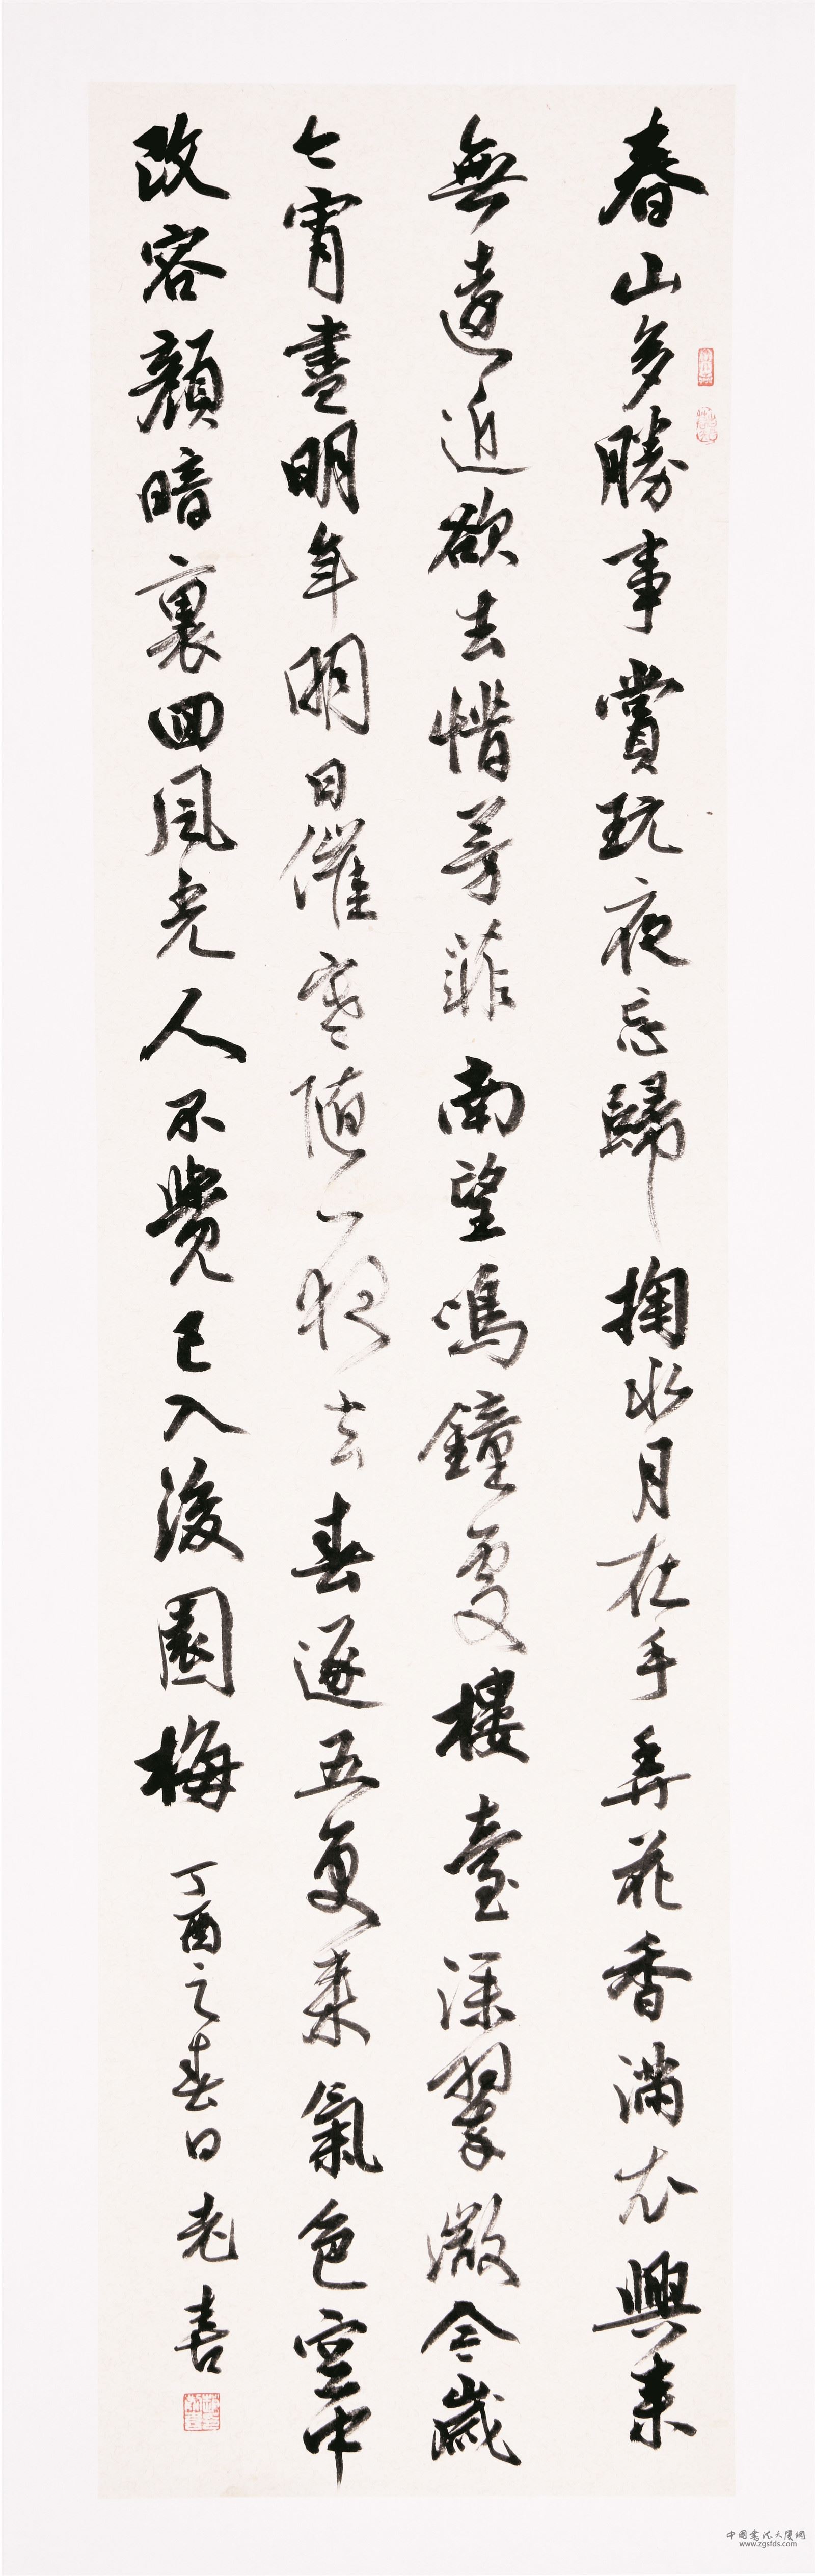 春山多勝事賞玩夜忘歸掬水月在手弄花香滿衣興来
無遠近欲去惜芳菲南望鳴鐘處樓臺深翠微今歲
今宵盡明年明日催寒隨一夜去春逐五更来氣色空中
改容顏暗裏回風光人不覺已入後園梅
丁酉之春日老喜
中國書法大厦網
www.zgsfds.com